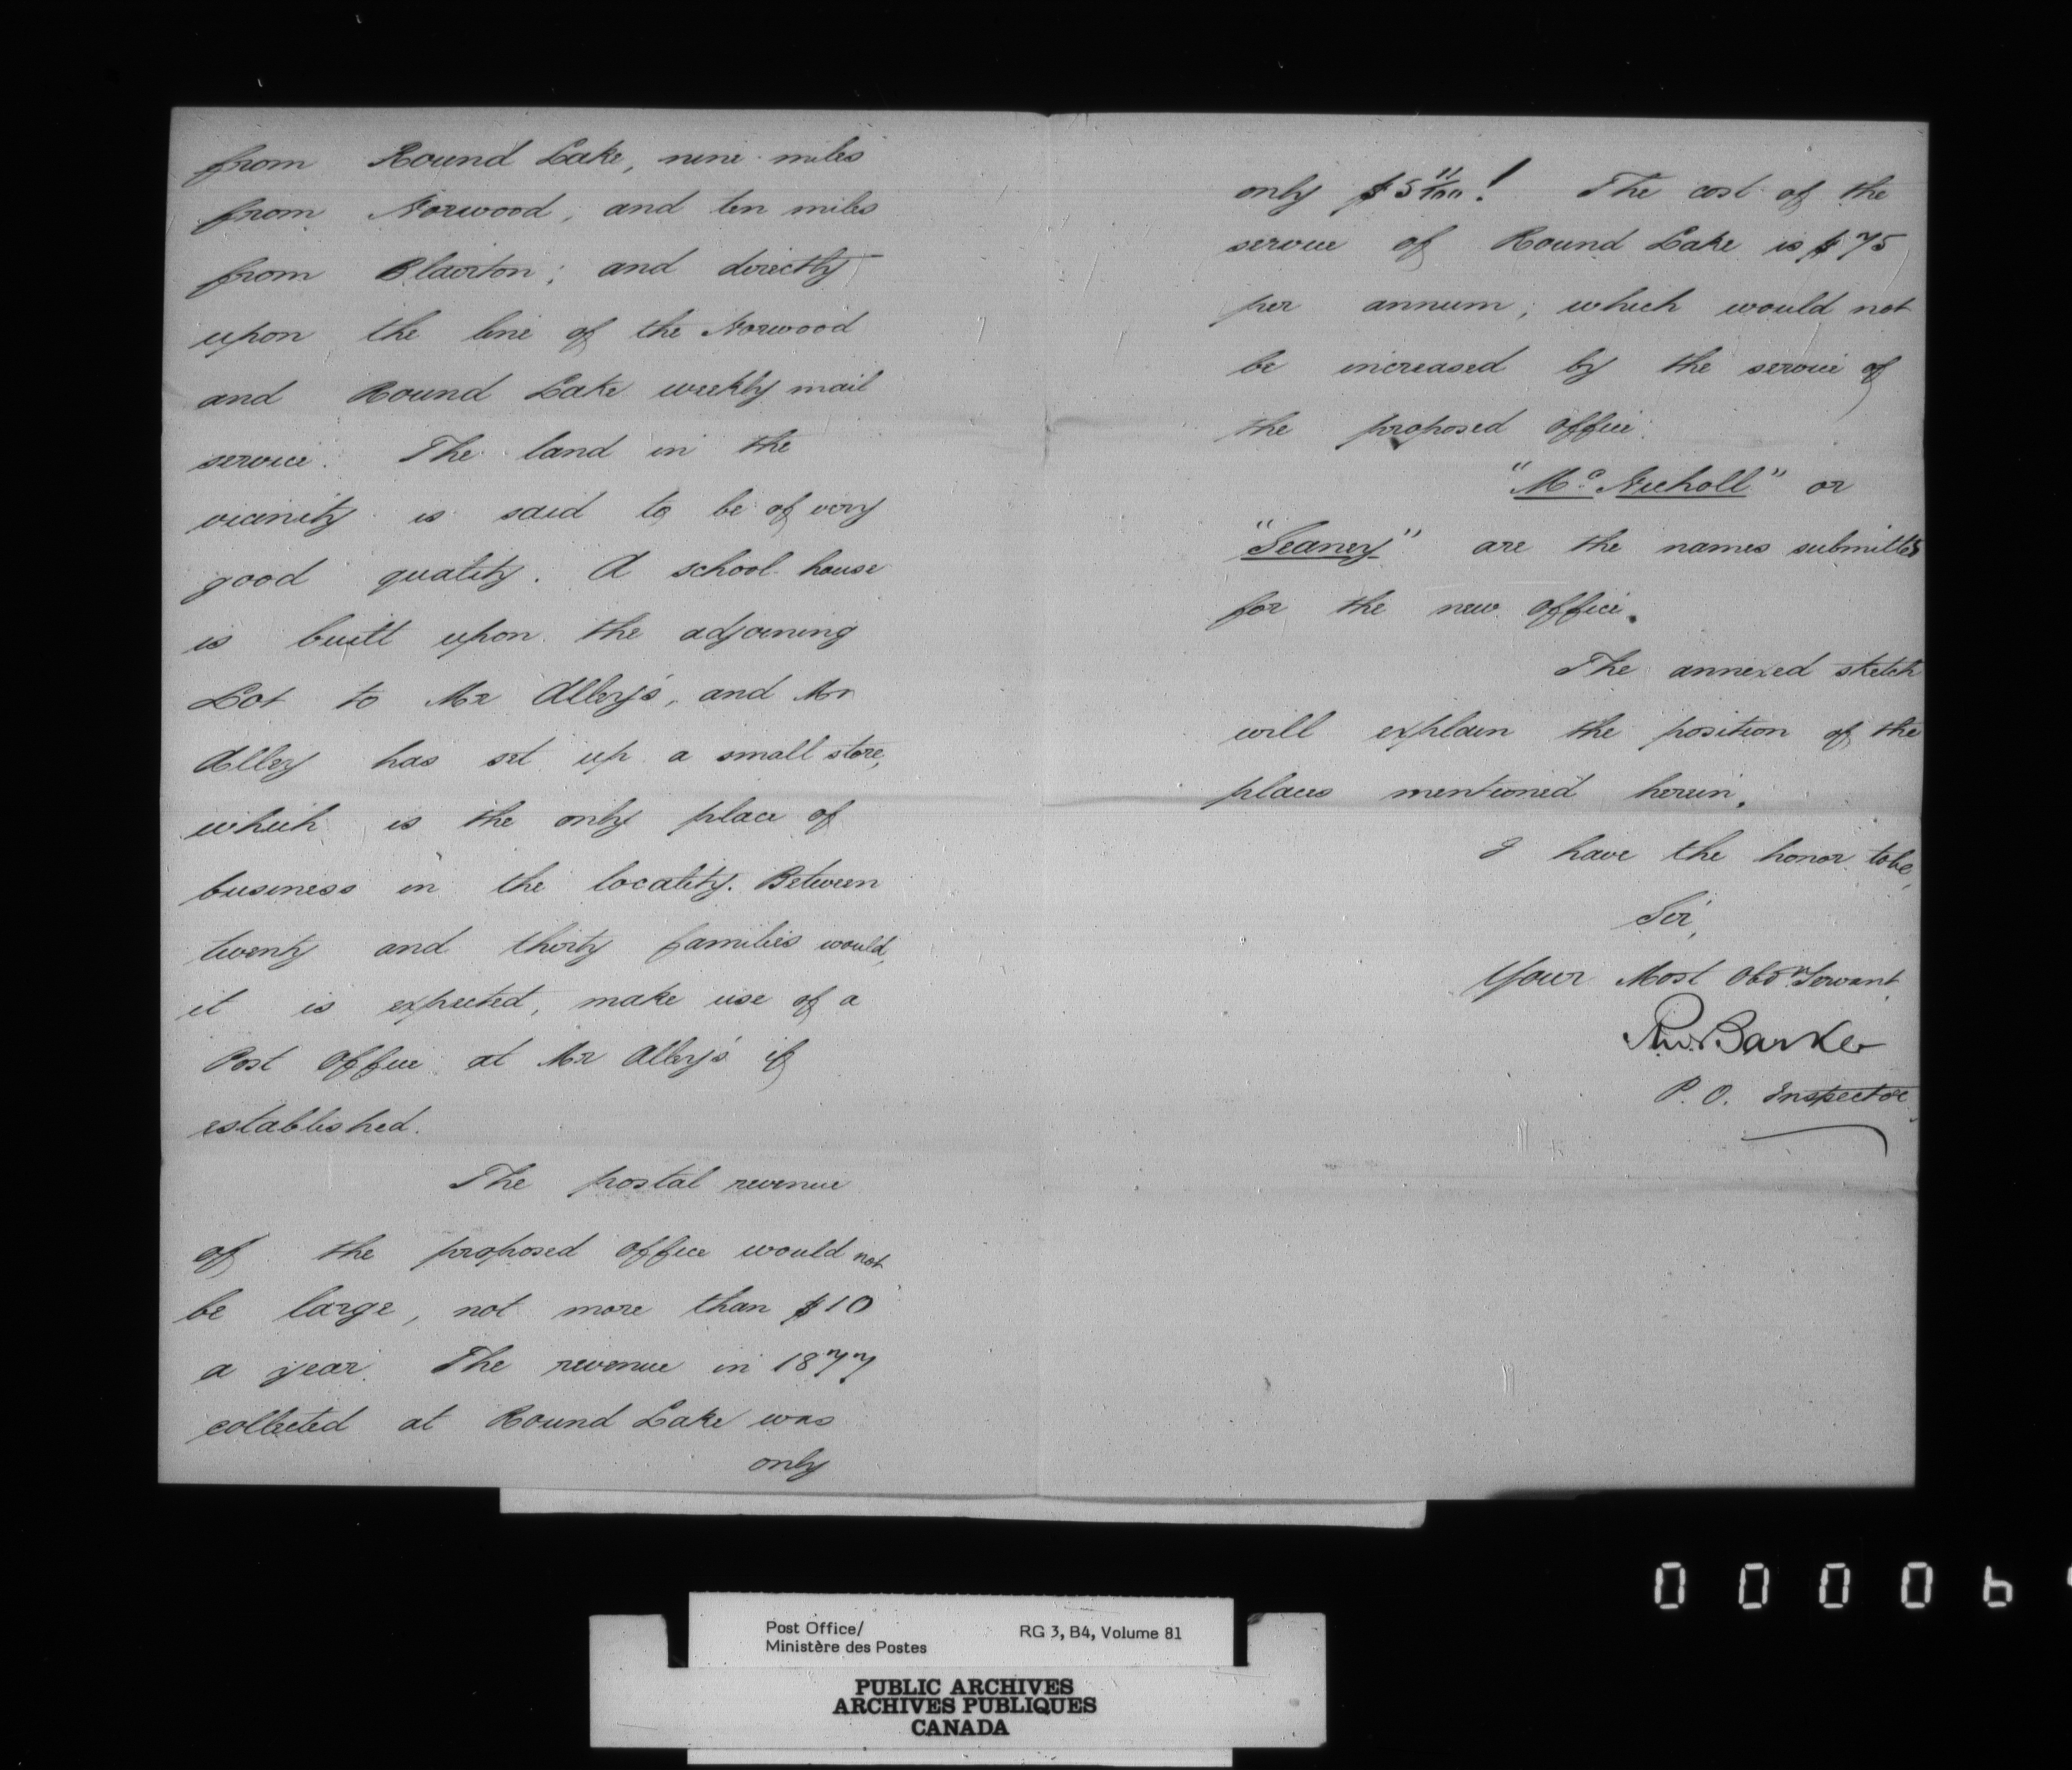 from Round Lake, nine miles
from Norwood, and ten miles
from Blairton; and directly
upon the line of the Norwood
and Round Lake weekly mail
service. The land in the
vicinity is said to be of very
good quality. A school house
is built upon the adjoining
Lot to Mr Alley's, and Mr
Alley has set up a small store,
which is the only place of
business in the locality. Between
twenty and thirty families would,
it is expected, make use of a
Post Office at Mr Alley's if
established.
The postal revenue
of the proposed office would not
be large, not more than $10
a year. The revenue in 1877
collected at Round Lake was
only
only $5 11/100! The cost of the
service of Round Lake is $75
per annum; which would not
be increased by the service of
the proposed office.
"Mc Nicholl" or
"Seaney" are the names submitted
for the new office.
The annexed sketch
will explain the position of the
places mentioned herein.
I have the honor to be,
Sir,
Your Most Obdt Servant
Barker
P. O. Inspector
Post Office/
Ministère des Postes
RG 3, B4, Volume 81
PUBLIC ARCHIVES
ARCHIVES PUBLIQUES
CANADA
00006